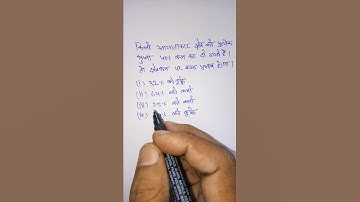 किसी आयताकार क्षेत्र की प्रत्येक
भुजा 40% कम कर दी जाती है।
तो क्षेत्रफल पर क्या प्रभाव होगा।
(i) 32% की वृद्धि
(ii) 64% की कमी
(iii) 25% की कमी
(iv) % की वृद्धि